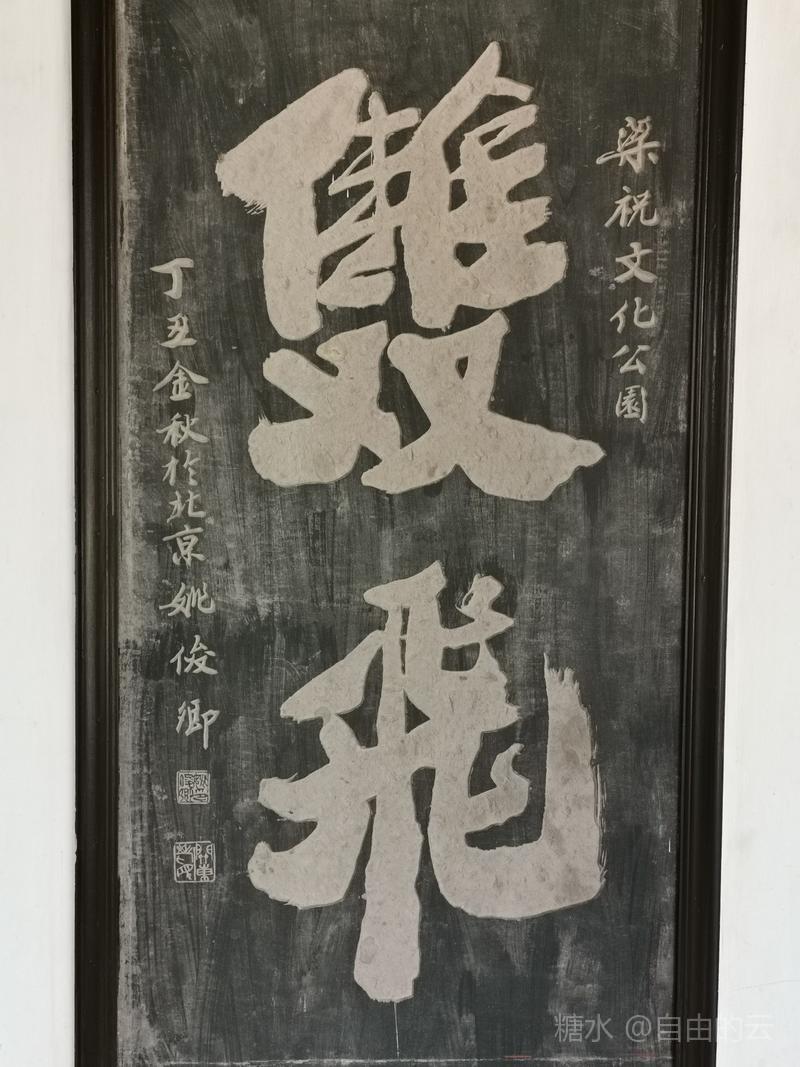 梁祝文化公園
雙飛
丁丑金秋於北京姚俊卿
糖水 @自由的云